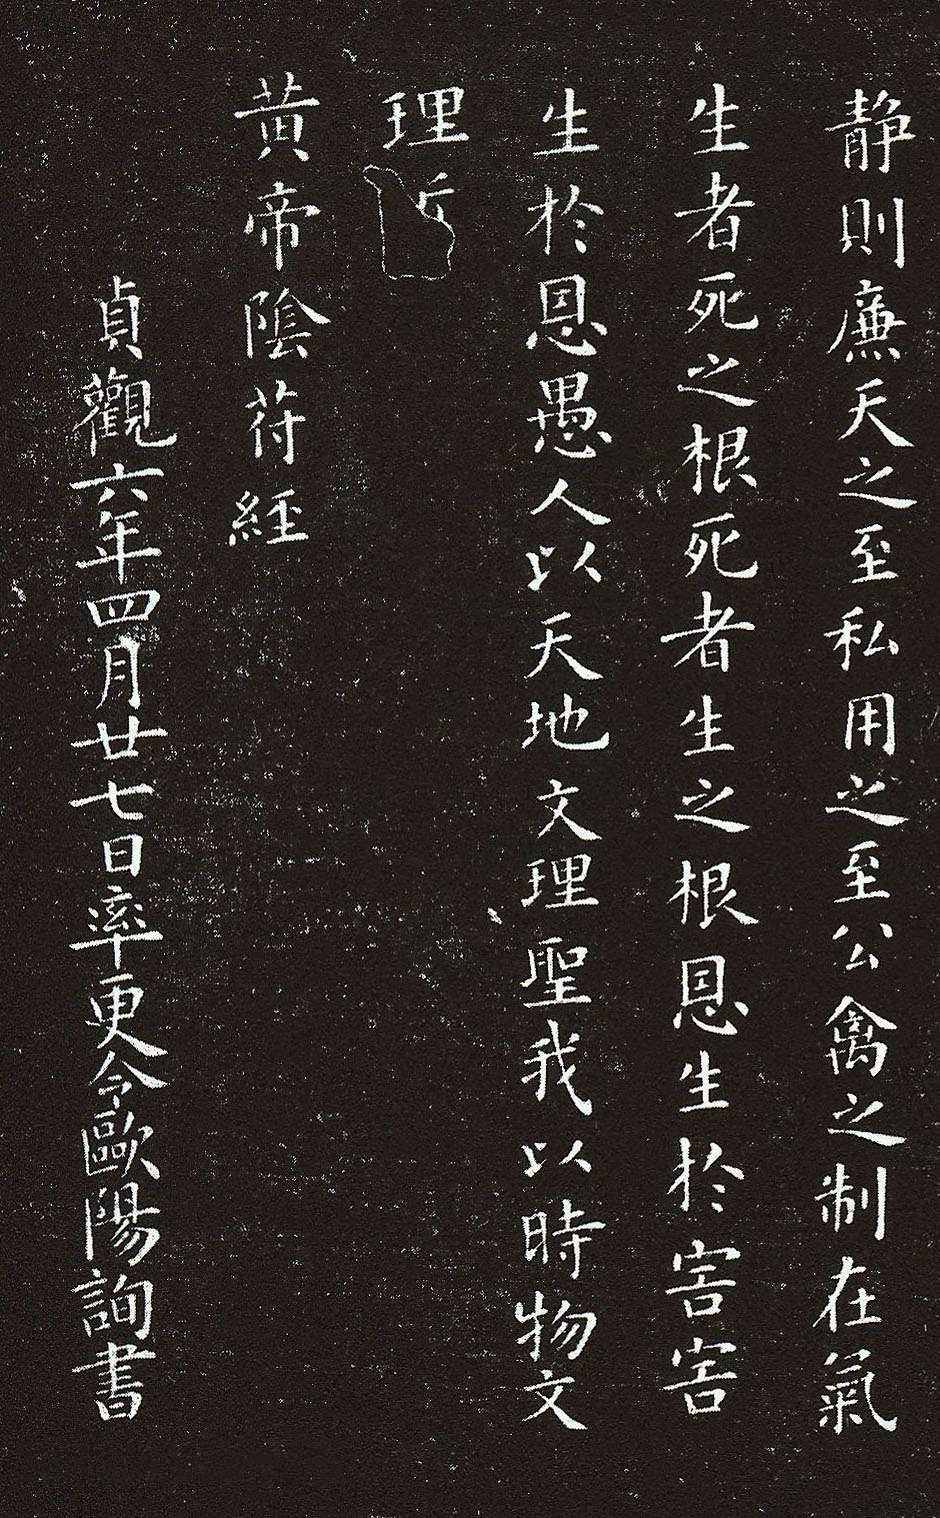 静則廉天之至私用之至公禽之制在氣
生者死之根死者生之根恩生於害害
生於恩愚人以天地文理聖我以時物文
理
黃帝陰苻經
貞觀六年四月廿七日率更令歐陽詢書